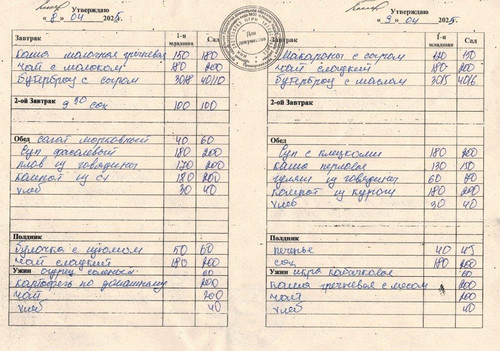 Утверждаю
« 8 » 04 2025г.
Завтрак 1-я младшая Сад
Каша молочная гречневая 150 180
Чай с молоком 180 200
Бутерброд с сыром 30/8 40/10
2-ой Завтрак 9 30 сок 100 100
Обед салат морковный 40 60
Суп фасолевый 180 200
Плов из говядины 170 200
Компот из с/ф 180 200
Хлеб 30 40
Полдник
Булочка с изюмом 50 60
Чай сладкий 180 200
Ужин огурец соленый 60
картофель по домашнему 200
Чай 200
Хлеб 40
Утверждаю
« 9 » 04 2025г.
Завтрак 1-я младшая Сад
Макароны с сыром 130 150
Чай сладкий 180 200
Бутерброд с маслом 30/5 40/6
2-ой Завтрак
Обед
Суп с клецками 180 200
Каша перловая 130 150
гуляш из говядины 60
Компот из кураги 180 200
Хлеб 30 40
Полдник
Печенье 40 45
Сок 180 200
Ужин икра кабачковая 60
Каша гречневая с мясом 200
Чай 200
Хлеб 40
Для документов